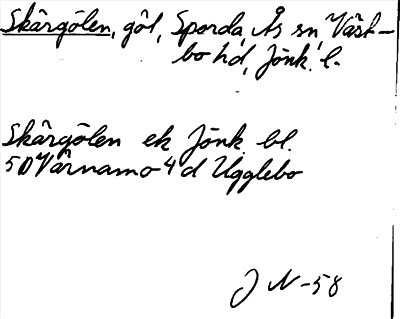 Skårgölen, göl, Sporda, Ås sn, Väst-
bo hd, Jönk. l.
Skårgölen ek Jönk. bl.
5D Värnamo 4 d Ugglebo
J N -58